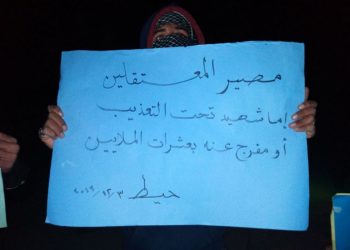 مصير المعتقلين
إما شهيد تحت التعذيب
أو مفرج عنه بعشرات الملايين
حيط ٢٠١٩/١٢/٣